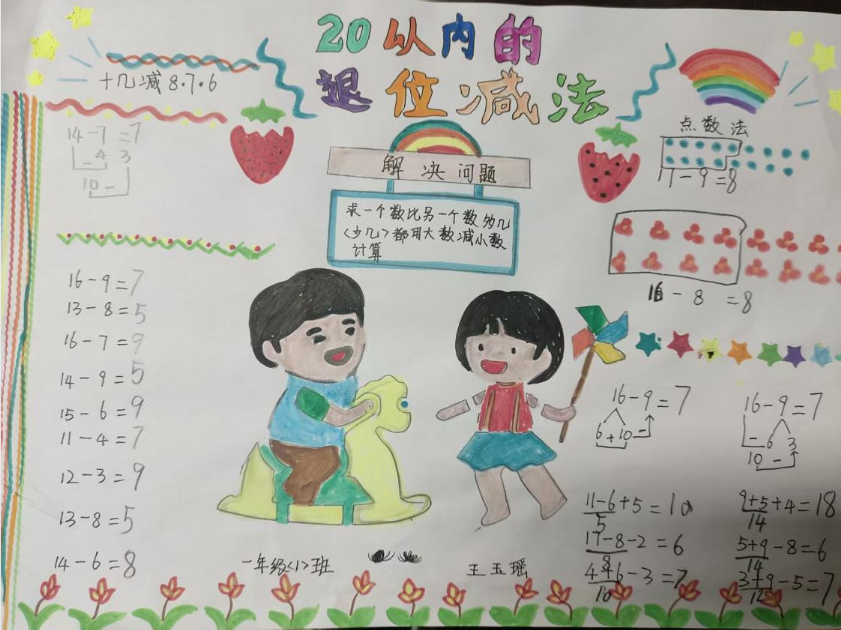 20以内的
退位减法
十几减8.7.6
14-7=7
4 3
10-
16-9=7
13-8=5
16-7=9
14-9=5
15-6=9
11-4=7
12-3=9
13-8=5
14-6=8
解决问题
求一个数比另一个数多几
<少几>都用大数减小数
计算
点数法
17-9=8
16-8=8
16-9=7
6+10-
16-9=7
-6 3
10-
11-6+5=10
5
17-8-2=6
8
4+6-3=7
10
9+5+4=18
14
5+9-8=6
14
3+9-5=7
12
一年级<1>班
王玉瑶